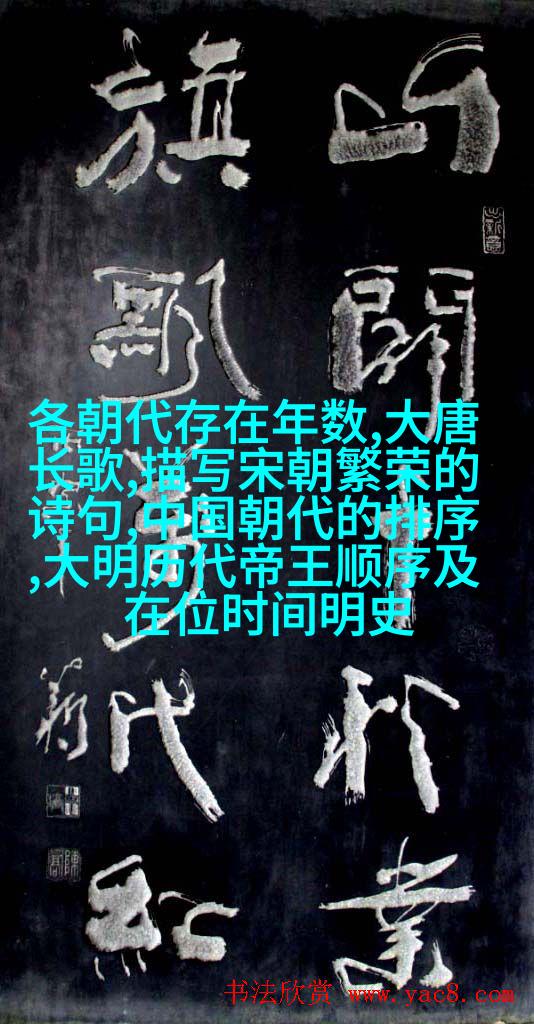 山開千秋業
旗飄萬代紅
各朝代存在年数,大唐
长歌,描写宋朝繁荣的
诗句,中国朝代的排序
,大明历代帝王顺序及
在位时间明史
书法欣赏 www.yac8.com